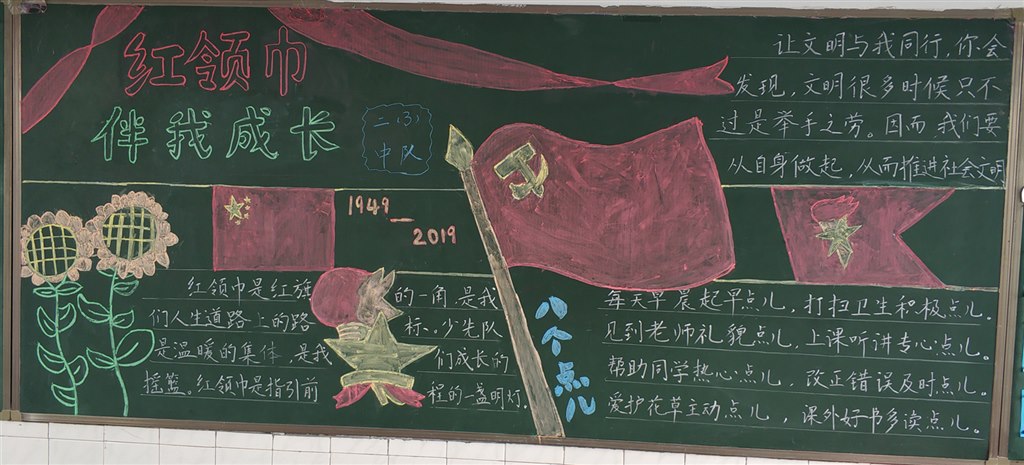 红领巾
伴我成长
二(3)
中队
让文明与我同行,你会
发现,文明很多时候只不
过是举手之劳。因而我们要
从自身做起,从而推进社会文明
1949
—
2019
红领巾是红旗的一角,是我
们人生道路上的路标..少先队
是温暖的集体,是我们成长的
摇篮。红领巾是指引前程的一盏明灯.
八个点儿
每天早晨起早点儿,打扫卫生积极点儿。
见到老师礼貌点儿,上课听讲专心点儿。
帮助同学热心点儿,改正错误及时点儿。
爱护花草主动点儿,课外好书多读点儿。